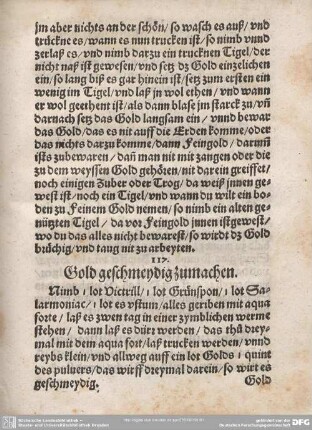 jm aber nichts an der schön/ so wasch es auß/ vnd
trückne es/ wann es nun trucken ist/ so nimb vnnd
zerlaß es/ vnd nimb darzu ein trucknen Tigel/ der
nicht naß ist gewesen/ vnd setz dz Gold einzelichen
ein/ so lang biß es gar hinein ist/ setz zum ersten ein
wenig im Tigel/ vnd laß jn wol ethen/ vnd wann
er wol geethent ist/ als dann blase jm starck zu/ vñ
darnach setz das Gold langsam ein/ vnnd bewar
das Gold/ das es nit auff die Erden komme/ oder
das nichts darzu komme/ dann Feingold/ darumb
ists zubewaren/ dañ man nit mit zangen oder die
zu dem weyssen Gold gehören/ nit darein greiffet/
noch einigen Zuber oder Trog/ da weiß jnnen ge-
west ist/ noch ein Tigel/ vnd wann du wilt ein bo-
den zu Feinem Gold nemen/ so nimb ein alten ge-
nützten Tigel/ da vor Feingold jnnen istgewest/
wo du das alles nicht bewarest/ so wirdt dz Gold
brüchig/ vnd taug nit zu arbeyten.
117.
Gold geschmeydig zumachen.
Nimb 1 lot Victrill/ 1 lot Grünspon/ 1 lot Sa-
larmoniac/ 1 lot es vstum/ alles geriben mit aqua
forte/ laß es zwen tag in einer zymblichen werme
stehen/ dann laß es dürr werden/ das thů drey-
mal mit dem aqua fort/ laß trucken werden/ vnnd
reybs klein/ vnd allweg auff ein lot Golds 1 quint
des puluers/ das wirff dreymal darein/ so wirt es
geschmeydig.
Gold